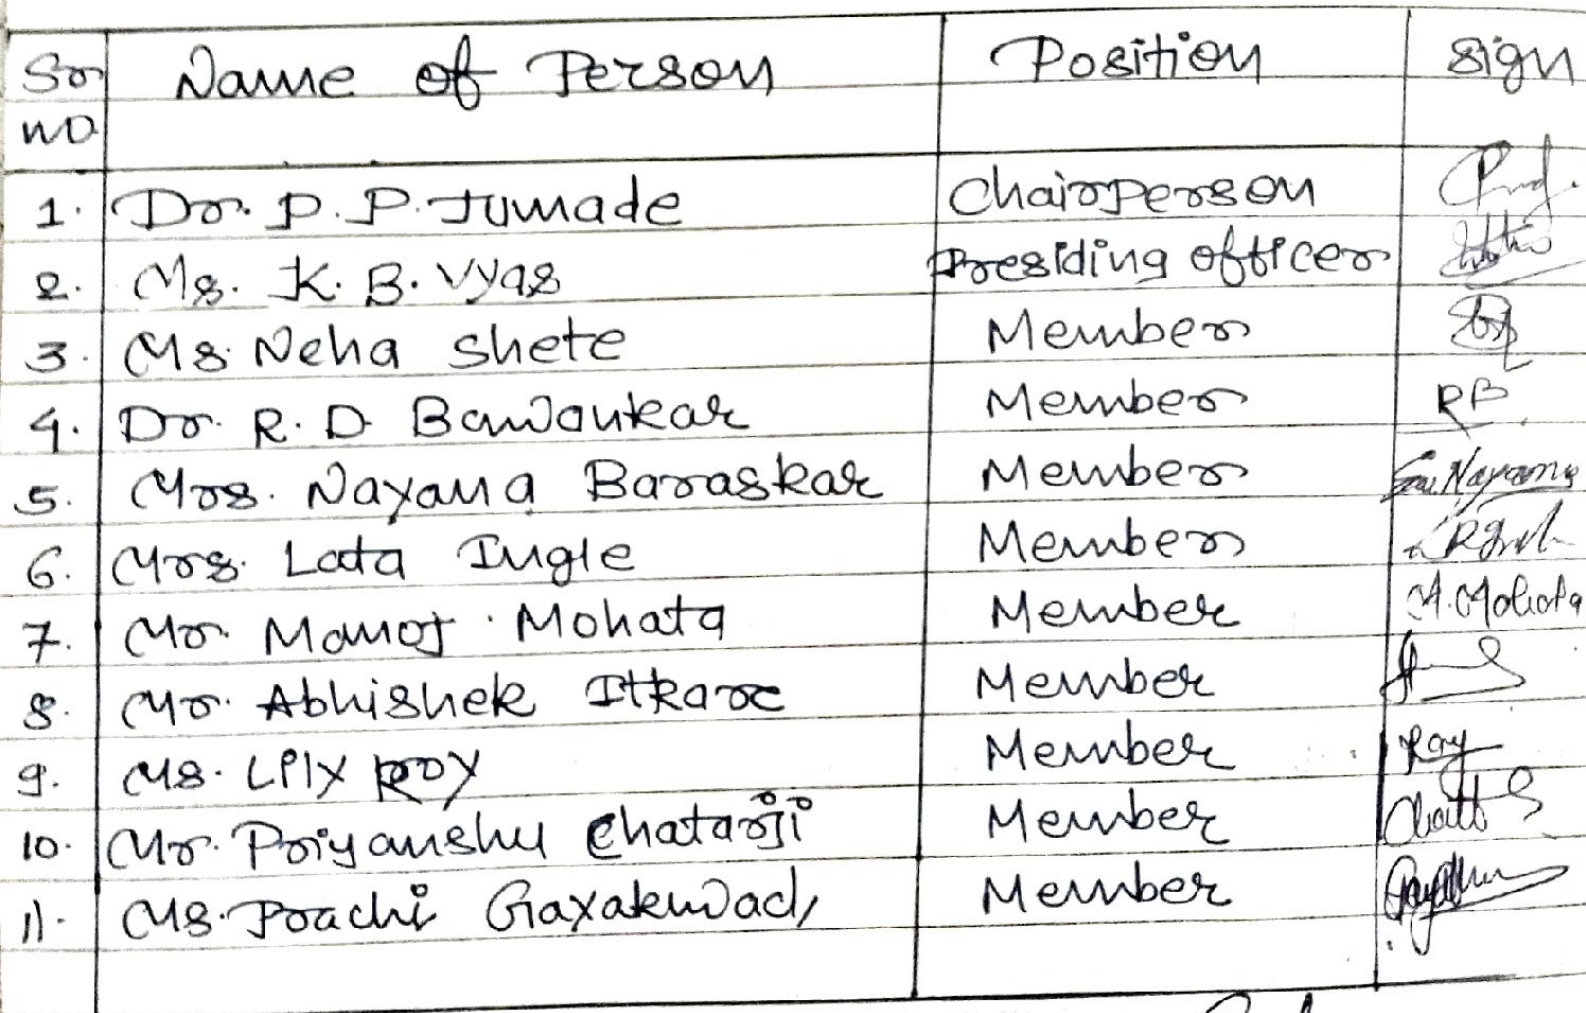 Sr Name of Person Position Sign
no.
1. Dr. P. P. Jumade Chairperson
2. Ms. K. B. Vyas Presiding officer
3. Ms. Neha Shete Member
4. Dr. R. D. Bawankar Member RB
5. Mrs. Nayana Baraskar Member Nayana
6. Mrs. Lata Ingle Member
7. Mr. Manoj Mohata Member M. Mohata
8. Mr. Abhishek Itkare Member
9. Ms. Roy Member Roy
10. Mr. Priyanshu Chatarji Member
11. Ms. Prachi Gayakwad Member